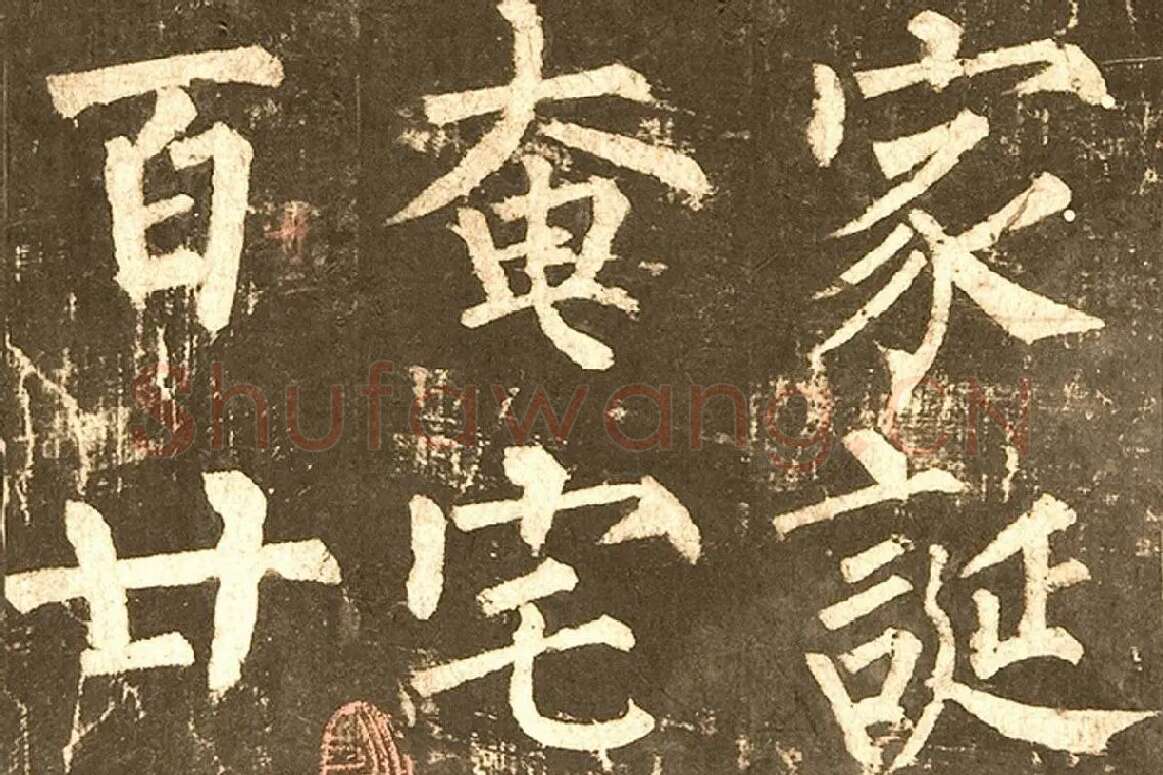 家誕
奄宅
百廿
Shufawang.CN